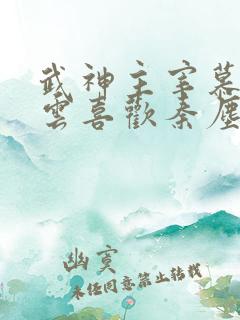 武神主宰慕
雲喜歡秦塵
幽寞
未经同意禁止转载